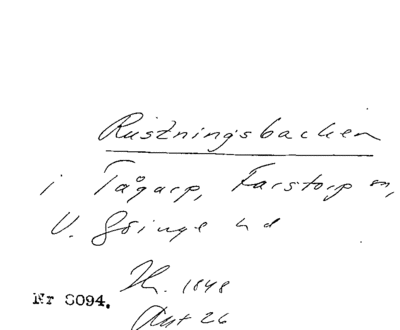 Rustningsbacken
i Tågarp, Farstorp sn,
V. Göinge hd
Th. 1848
Nr 8094.
Ant 26